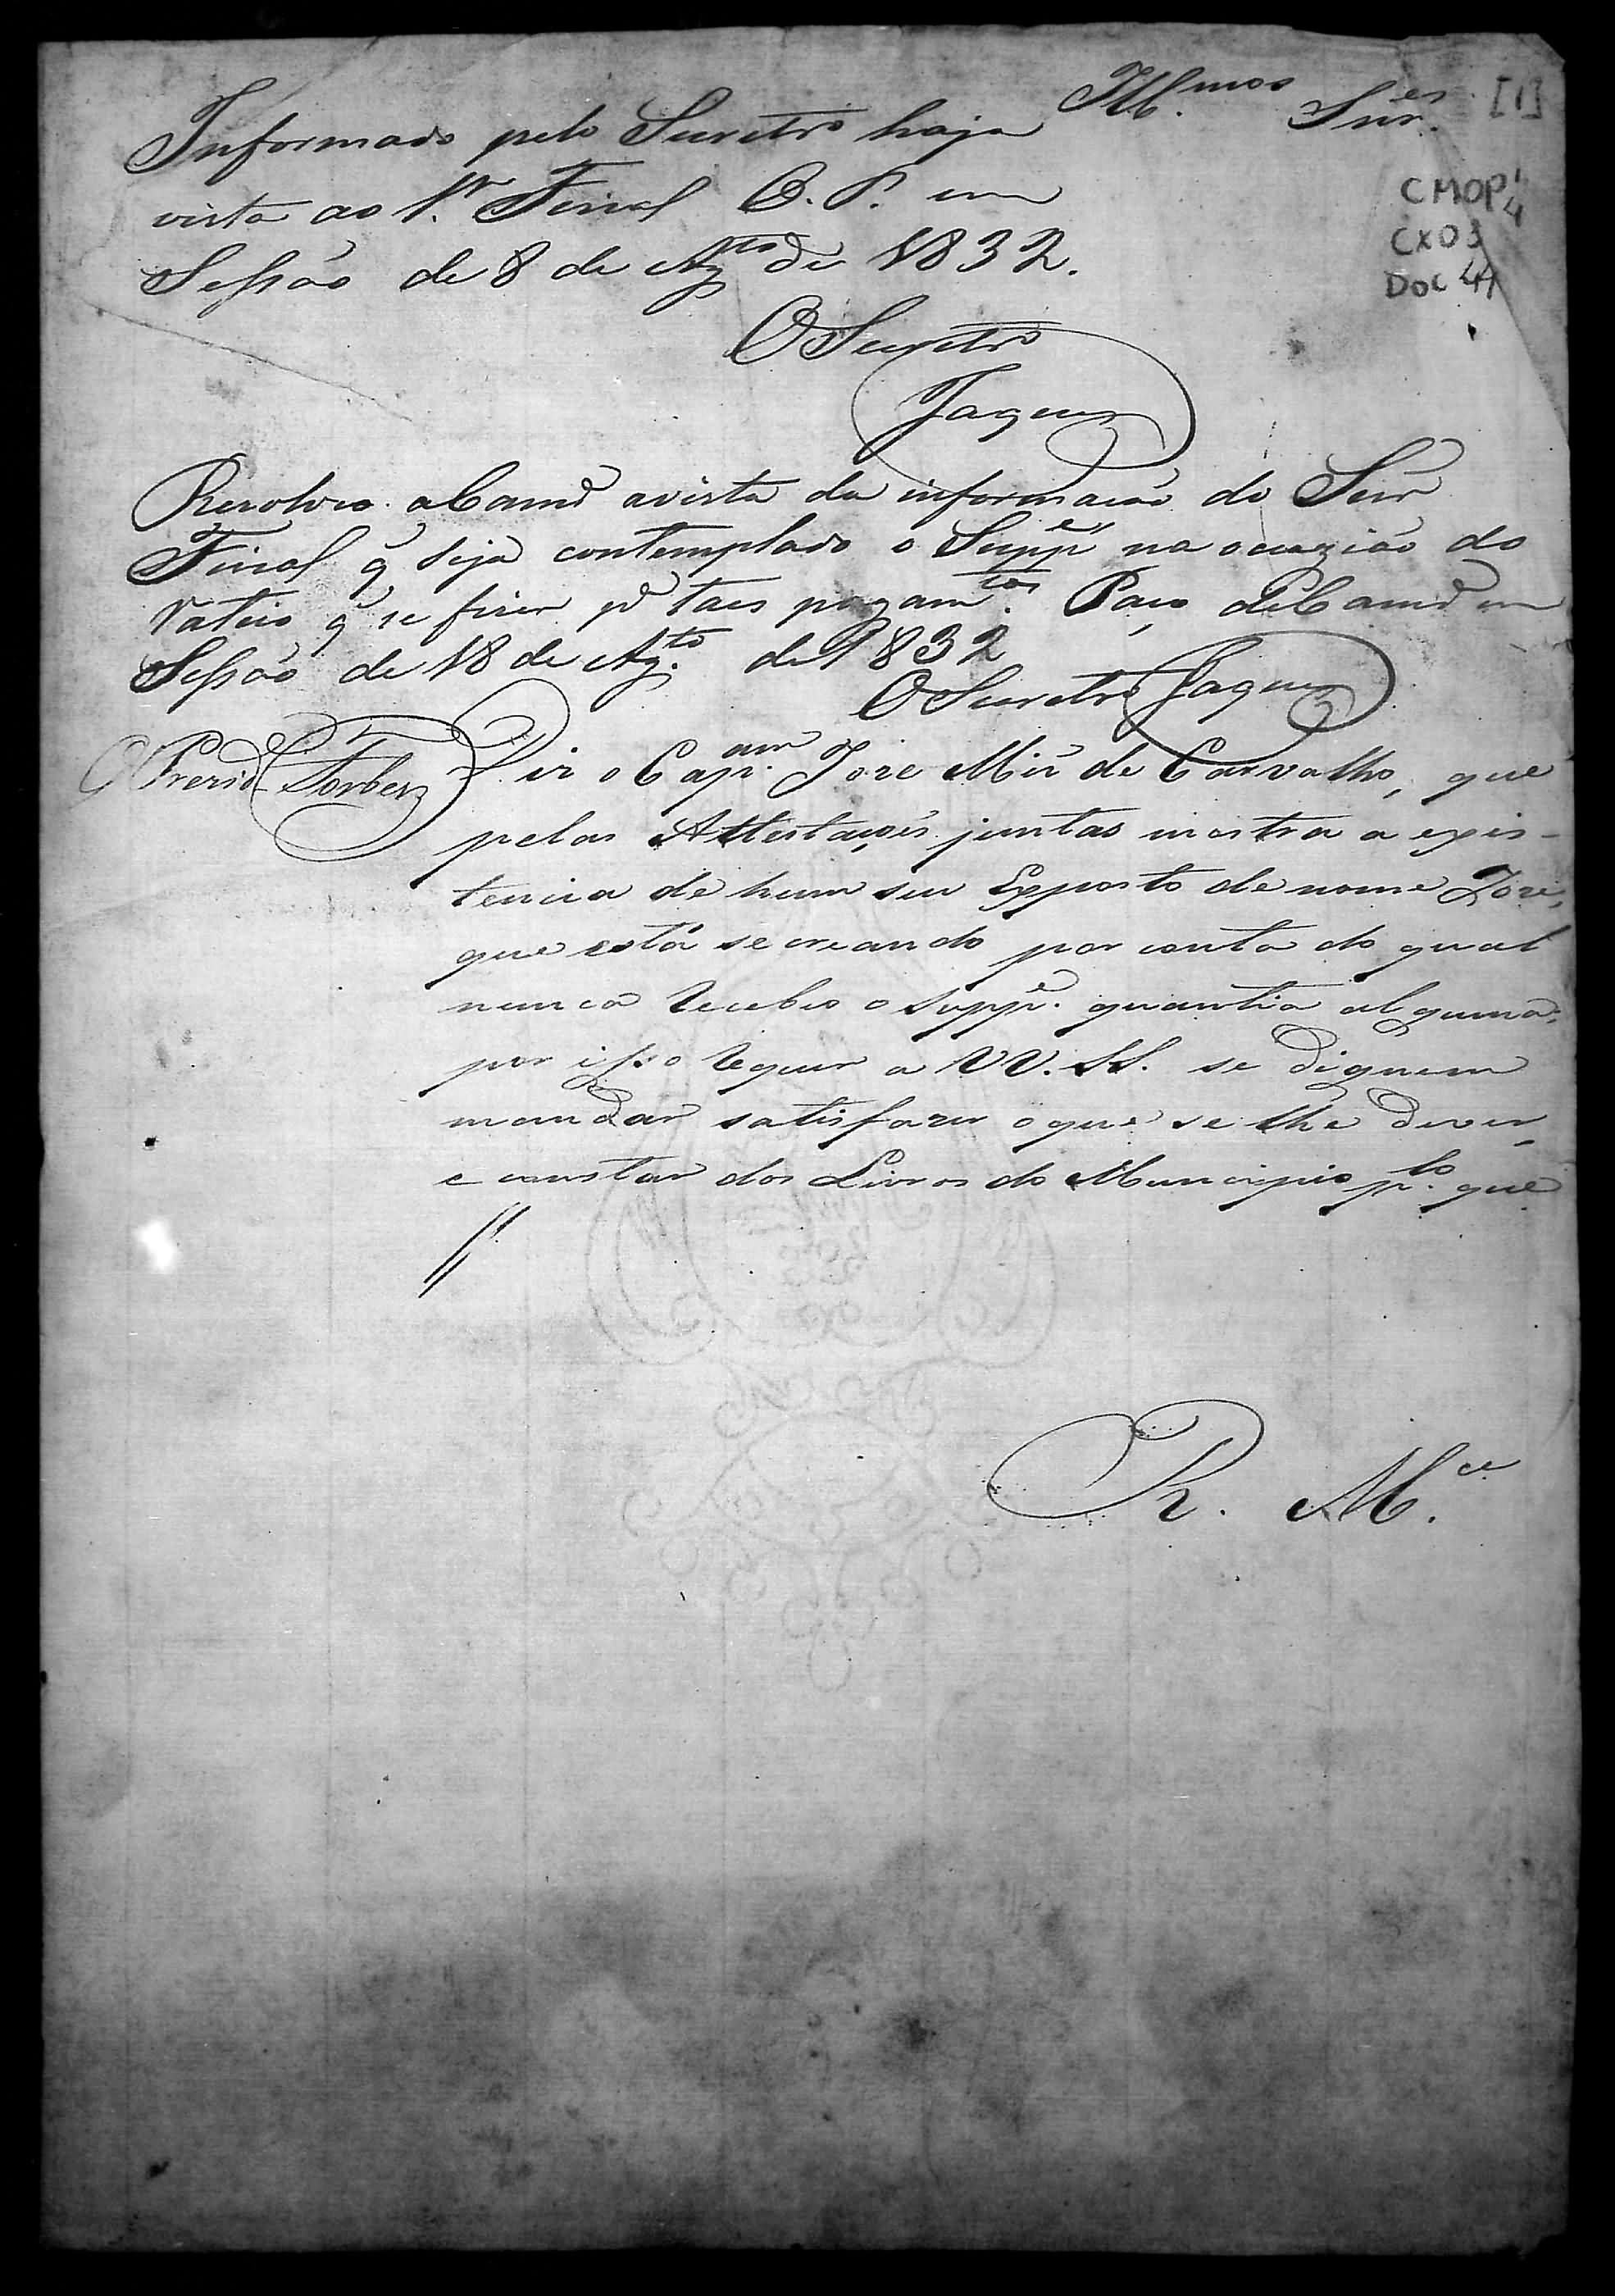 Ill.mos Snr.es [1]
Informado pelo Secretr.o haja
vista ao Snr. Fiscal O. P. em
Sessão de 8 de Ag.to de 1832.
CMOP
CX03
DOC 44
O Secretr.o
Jaques
Resolveo a Camr.a avista da informação do Snr.
Fiscal q̃ seja contemplado o Supp.e na occazião do
rateio q̃ se fizer p.a taes pagam.tos. Paço da Camr.a em
Sessão de 18 de Ag.to de 1832
O Secretr.o Jaques
O Prezid.e
Diz o Cap.am Joze Mir.a de Carvalho, que
pelas Attestaçoẽs juntas mostra a exis-
tencia de hum seu Exposto de nome Joze,
que está se creando por conta do qual
nunca recebeo o Supp.e quantia alguma;
por isso requer a VV. SS. se dignem
mandar satisfazer o que se lhe dever,
e constar dos Livros do Municipio p.lo que
R. M.ce